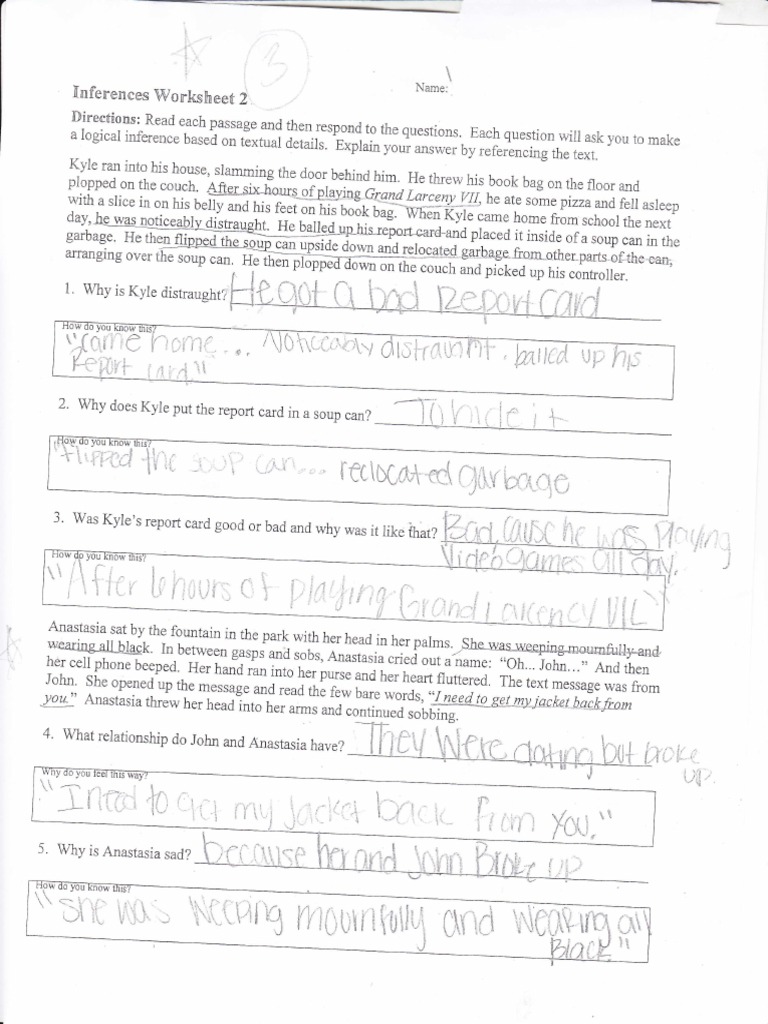 3
Name:
Inferences Worksheet 2
Directions: Read each passage and then respond to the questions. Each question will ask you to make
a logical inference based on textual details. Explain your answer by referencing the text.
Kyle ran into his house, slamming the door behind him. He threw his book bag on the floor and
plopped on the couch. After six hours of playing Grand Larceny VII, he ate some pizza and fell asleep
with a slice in on his belly and his feet on his book bag. When Kyle came home from school the next
day, he was noticeably distraught. He balled up his report card and placed it inside of a soup can in the
garbage. He then flipped the soup can upside down and relocated garbage from other parts of the can,
arranging over the soup can. He then plopped down on the couch and picked up his controller.
1. Why is Kyle distraught? He got a bad Report Card
How do you know this?
"came home... Noticeably distraught. balled up his
Report card"
2. Why does Kyle put the report card in a soup can? To hide it
How do you know this?
Flipped the soup can... reclocated garbage
3. Was Kyle's report card good or bad and why was it like that? Bad, cause he was Playing
Video Games all day.
How do you know this?
"After 6 hours of playing Grand Larcency VII"
Anastasia sat by the fountain in the park with her head in her palms. She was weeping mournfully and
wearing all black. In between gasps and sobs, Anastasia cried out a name: "Oh... John..." And then
her cell phone beeped. Her hand ran into her purse and her heart fluttered. The text message was from
John. She opened up the message and read the few bare words, "I need to get my jacket back from
you." Anastasia threw her head into her arms and continued sobbing.
4. What relationship do John and Anastasia have? They Were dating but broke
up.
Why do you feel this way?
"I need to get my jacket back from you."
5. Why is Anastasia sad? because her and John Broke up
How do you know this?
"she was weeping mournfully and wearing all
Black"